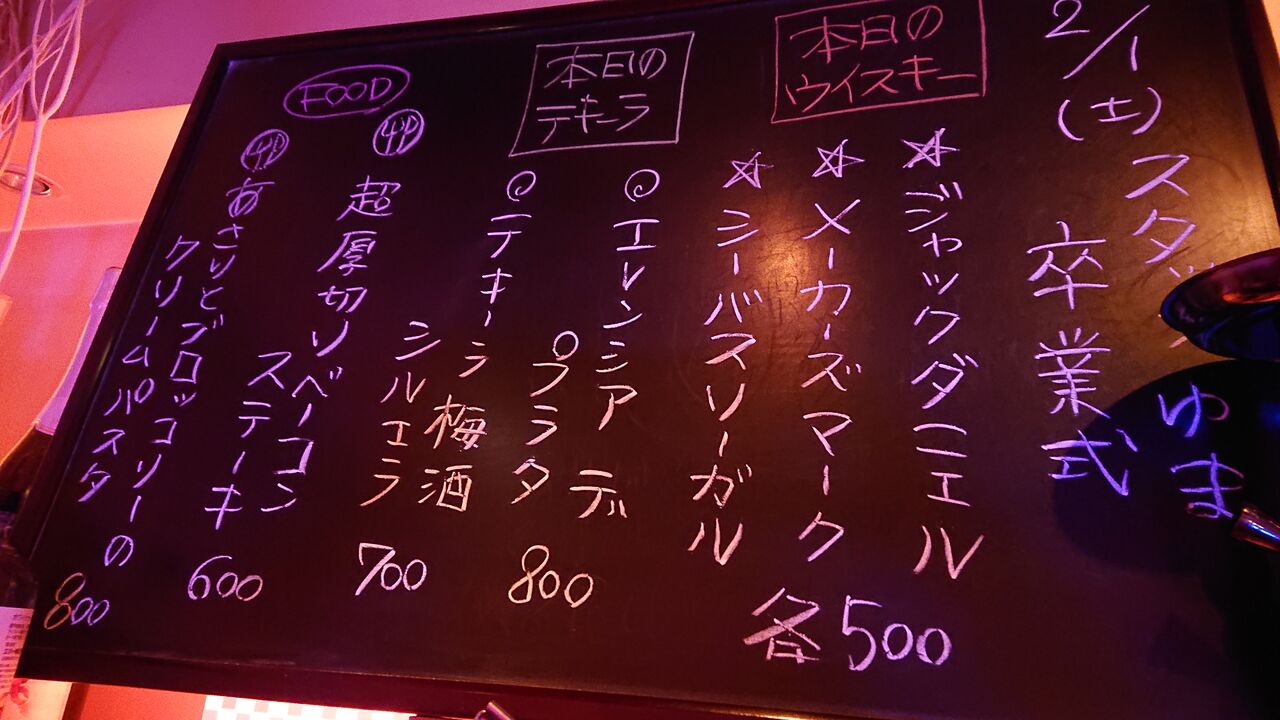 2/1
(土)
スタッフ ゆま
卒業式
本日の
ウイスキー
☆ジャックダニエル
☆メーカーズマーク
☆シーバスリーガル
各500
本日の
テキーラ
エレンシア デ
プラタ
800
テキーラ梅酒
シルエラ
700
FOOD
超厚切りベーコン
ステーキ
600
あさりとブロッコリーの
クリームパスタ
800